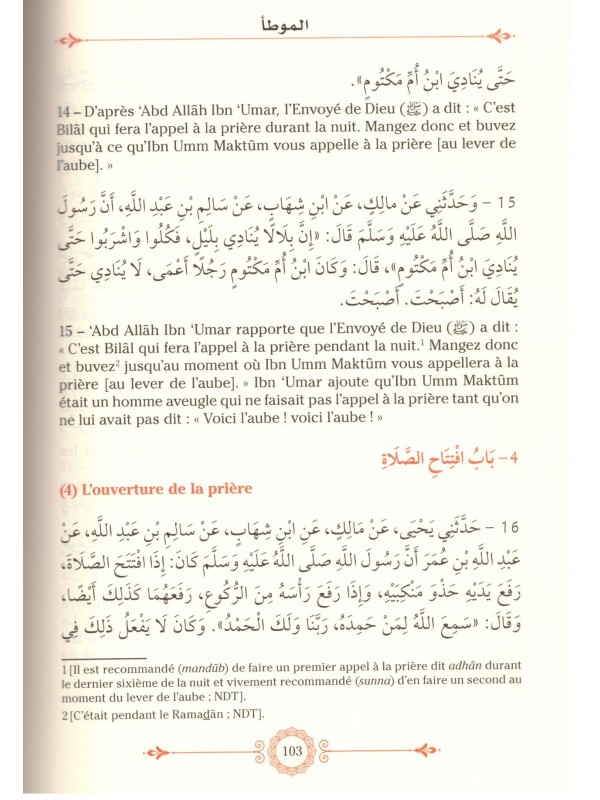 الموطأ
حَتَّى يُنَادِيَ ابْنُ أُمِّ مَكْتُومٍ».
14 – D’après ‘Abd Allâh Ibn ‘Umar, l’Envoyé de Dieu (ﷺ) a dit : « C’est
Bilâl qui fera l’appel à la prière durant la nuit. Mangez donc et buvez
jusqu’à ce qu’Ibn Umm Maktûm vous appelle à la prière [au lever de
l’aube]. »
15 – وَحَدَّثَنِي عَنْ مالِكٍ، عَنْ ابْنِ شِهَابٍ، عَنْ سَالِمِ بْنِ عَبْدِ اللَّهِ، أَنَّ رَسُولَ
اللَّهِ صَلَّى اللَّهُ عَلَيْهِ وَسَلَّمَ قَالَ: «إِنَّ بِلَالًا يُنَادِي بِلَيْلٍ، فَكُلُوا وَاشْرَبُوا حَتَّى
يُنَادِيَ ابْنُ أُمِّ مَكْتُومٍ»، قَالَ: وَكَانَ ابْنُ أُمِّ مَكْتُومٍ رَجُلًا أَعْمَى، لَا يُنَادِي حَتَّى
يُقَالَ لَهُ: أَصْبَحْتَ. أَصْبَحْتَ.
15 – ‘Abd Allâh Ibn ‘Umar rapporte que l’Envoyé de Dieu (ﷺ) a dit :
« C’est Bilâl qui fera l’appel à la prière pendant la nuit.¹ Mangez donc
et buvez² jusqu’au moment où Ibn Umm Maktûm vous appellera à la
prière [au lever de l’aube]. » Ibn ‘Umar ajoute qu’Ibn Umm Maktûm
était un homme aveugle qui ne faisait pas l’appel à la prière tant qu’on
ne lui avait pas dit : « Voici l’aube ! voici l’aube ! »
4– بَابُ افْتِتَاحِ الصَّلَاةِ
(4) L’ouverture de la prière
16 – حَدَّثَنِي يَحْيَى، عَنْ مَالِكٍ، عَنِ ابْنِ شِهَابٍ، عَنْ سَالِمِ بْنِ عَبْدِ اللَّهِ، عَنْ
عَبْدِ اللَّهِ بْنِ عُمَرَ أَنَّ رَسُولَ اللَّهِ صَلَّى اللَّهُ عَلَيْهِ وَسَلَّمَ كَانَ: إِذَا افْتَتَحَ الصَّلَاةَ،
رَفَعَ يَدَيْهِ حَذْوَ مَنْكِبَيْهِ، وَإِذَا رَفَعَ رَأْسَهُ مِنَ الرُّكُوعِ، رَفَعَهُمَا كَذَلِكَ أَيْضًا،
وَقَالَ: «سَمِعَ اللَّهُ لِمَنْ حَمِدَهُ، رَبَّنَا وَلَكَ الْحَمْدُ». وَكَانَ لَا يَفْعَلُ ذَلِكَ فِي
1 [Il est recommandé (mandûb) de faire un premier appel à la prière dit adhân durant
le dernier sixième de la nuit et vivement recommandé (sunna) d’en faire un second au
moment du lever de l’aube ; NDT].
2 [C’était pendant le Ramaḏân ; NDT].
103